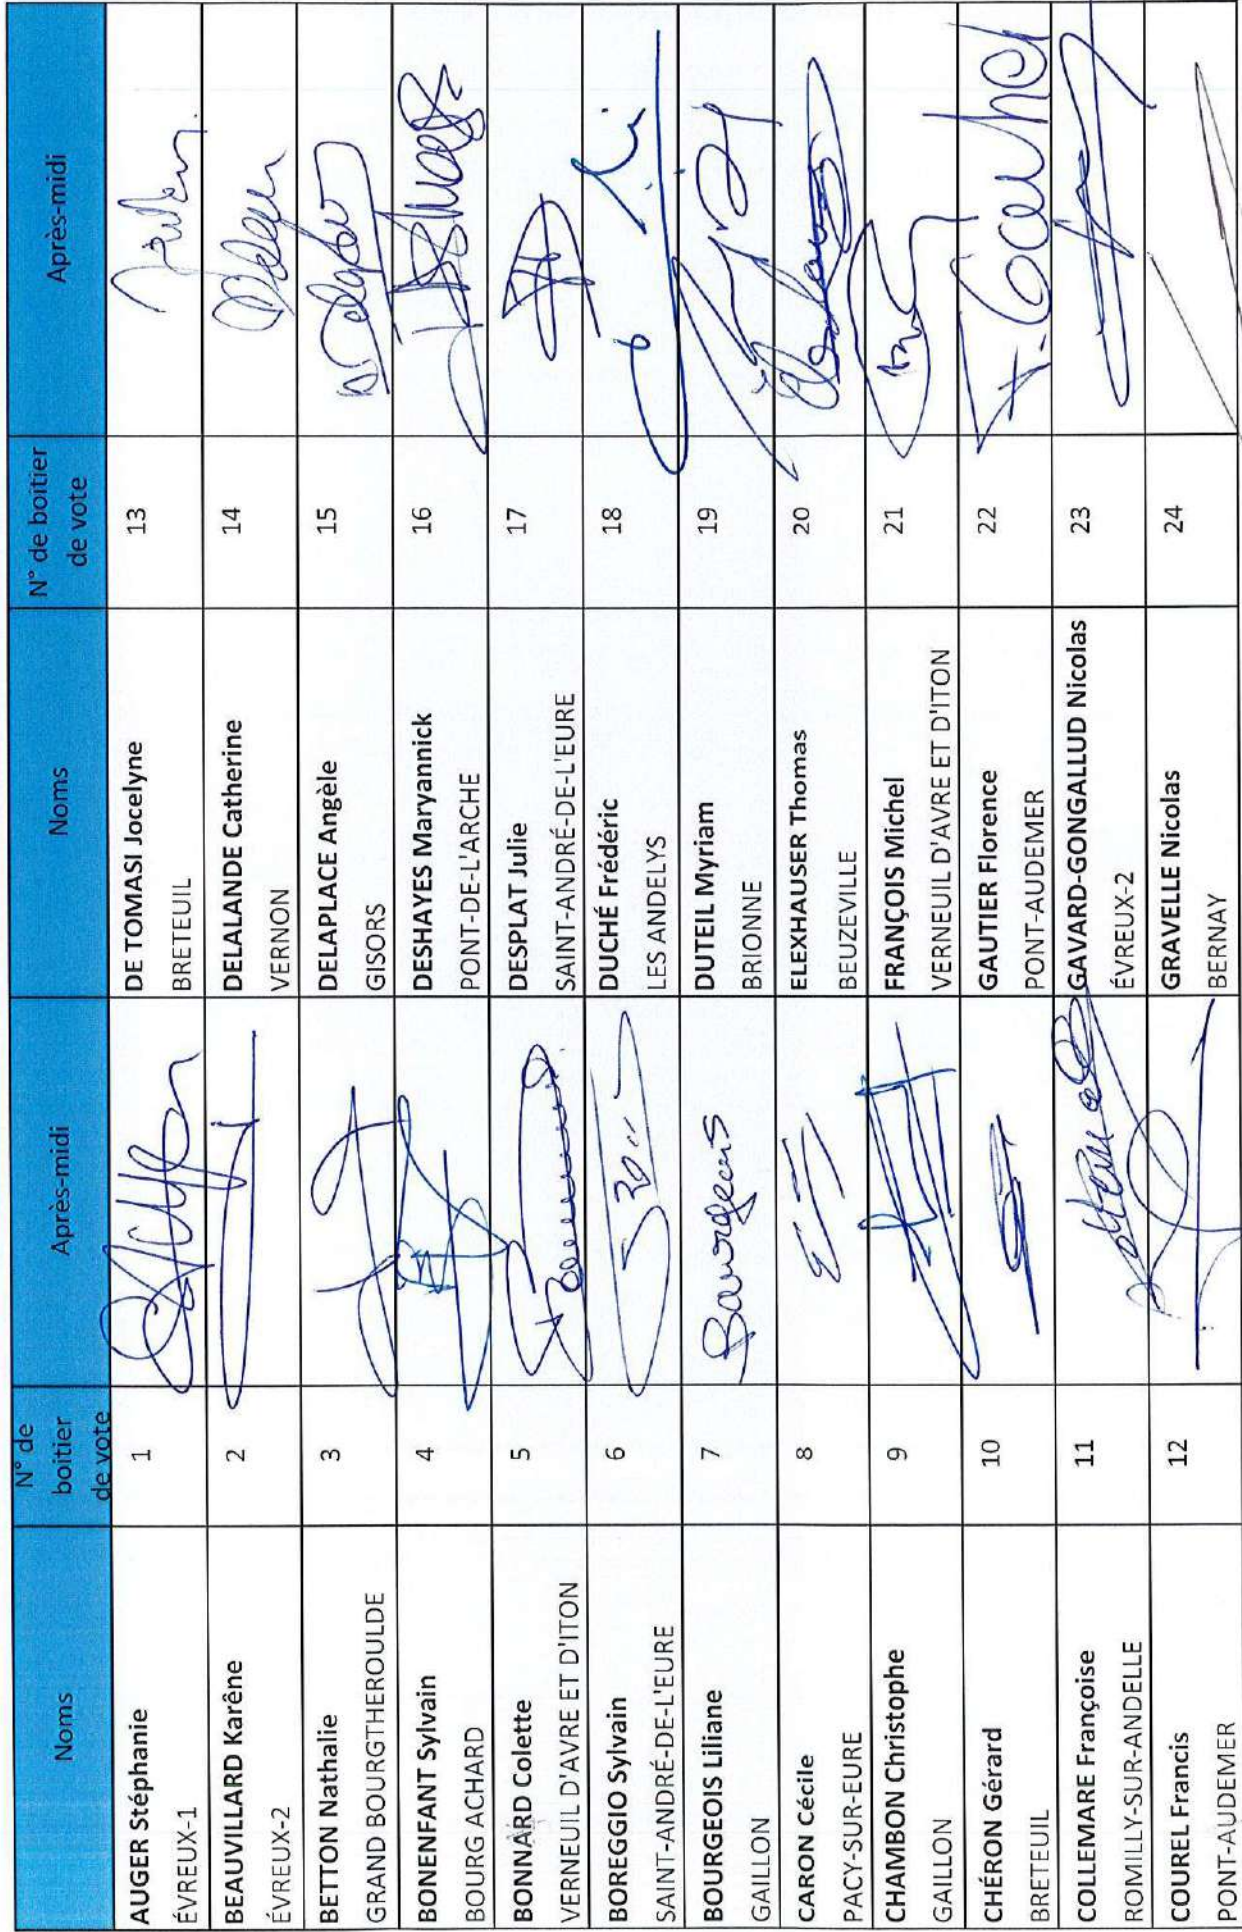 Noms
N° de
boitier
de vote
Après-midi
Noms
N° de boitier
de vote
Après-midi
AUGER Stéphanie
ÉVREUX-1
1
DE TOMASI Jocelyne
BRETEUIL
13
BEAUVILLARD Karêne
ÉVREUX-2
2
DELALANDE Catherine
VERNON
14
BETTON Nathalie
GRAND BOURGTHEROULDE
3
DELAPLACE Angèle
GISORS
15
BONENFANT Sylvain
BOURG ACHARD
4
DESHAYES Maryannick
PONT-DE-L'ARCHE
16
BONNARD Colette
VERNEUIL D'AVRE ET D'ITON
5
DESPLAT Julie
SAINT-ANDRÉ-DE-L'EURE
17
BOREGGIO Sylvain
SAINT-ANDRÉ-DE-L'EURE
6
DUCHÉ Frédéric
LES ANDELYS
18
BOURGEOIS Liliane
GAILLON
7
Bourgeois
DUTEIL Myriam
BRIONNE
19
CARON Cécile
PACY-SUR-EURE
8
ELEXHAUSER Thomas
BEUZEVILLE
20
CHAMBON Christophe
GAILLON
9
FRANÇOIS Michel
VERNEUIL D'AVRE ET D'ITON
21
CHÉRON Gérard
BRETEUIL
10
GAUTIER Florence
PONT-AUDEMER
22
COLLEMARE Françoise
ROMILLY-SUR-ANDELLE
11
GAVARD-GONGALLUD Nicolas
ÉVREUX-2
23
COUREL Francis
PONT-AUDEMER
12
GRAVELLE Nicolas
BERNAY
24